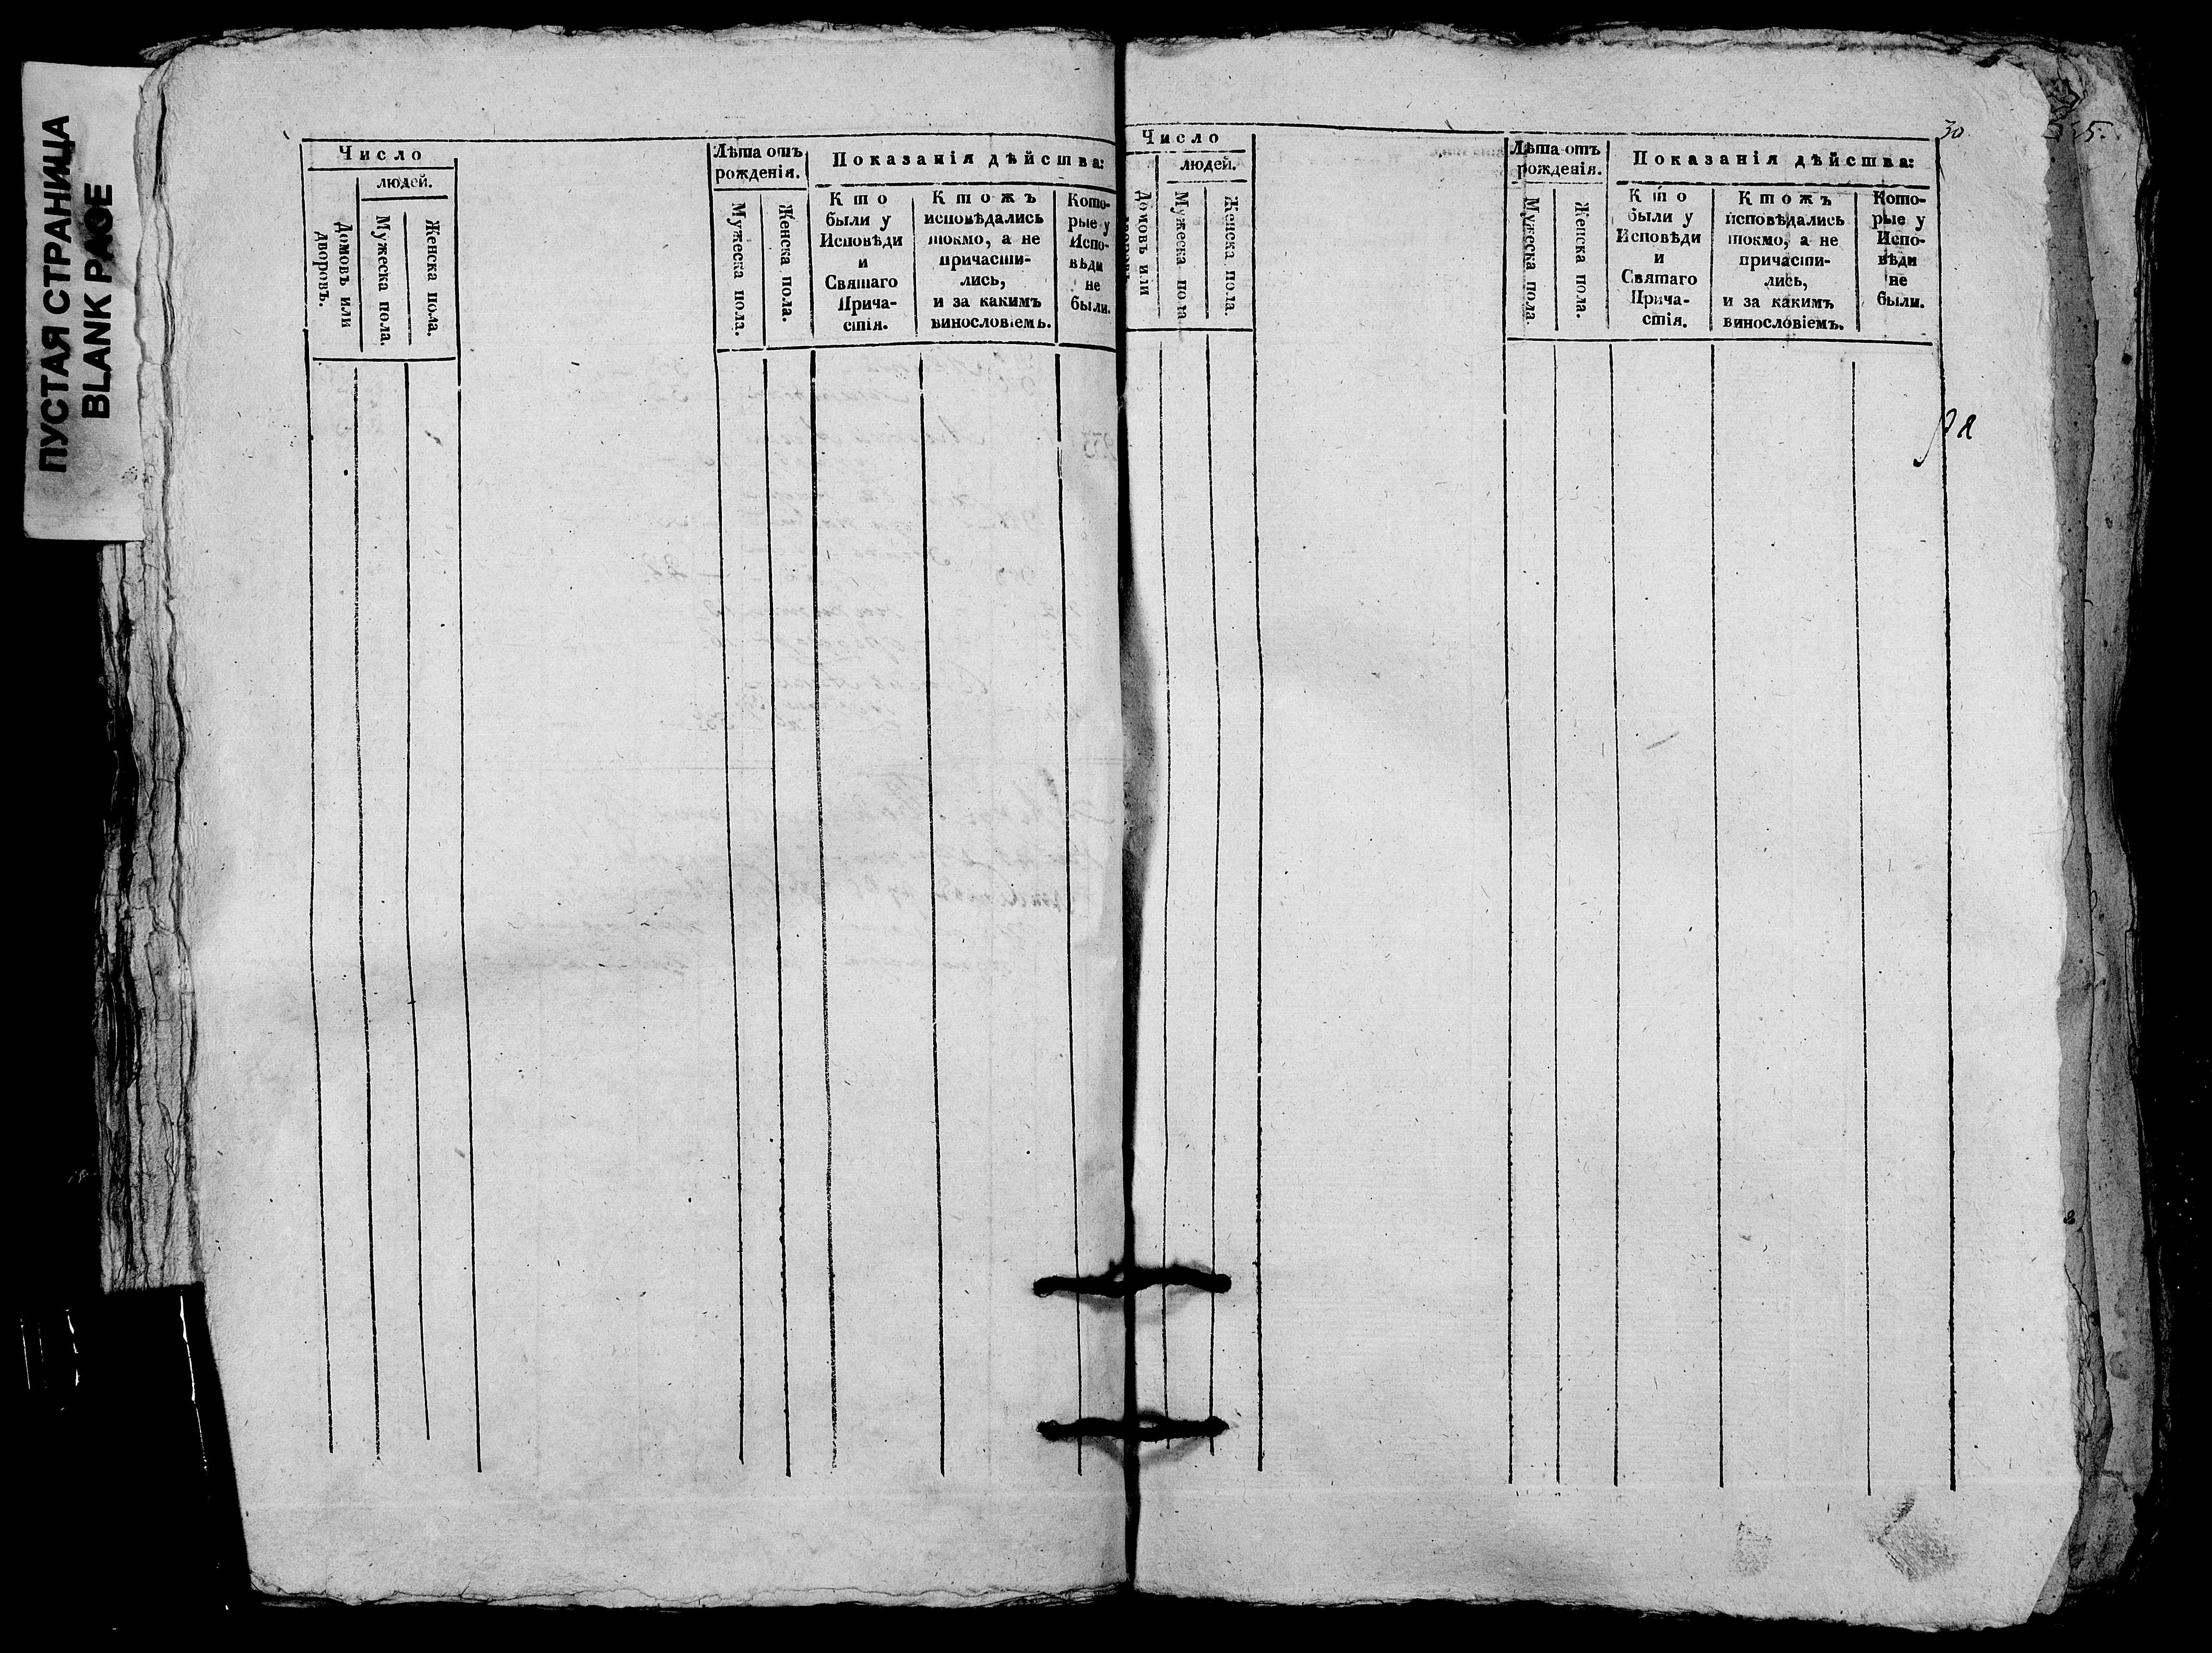 ПУСТАЯ СТРАНИЦА
BLANK PAGE
Число
людей.
Домовъ или
дворовъ.
Мужеска пола.
Женска пола.
Лѣта отъ
рожденія.
Мужеска пола.
Женска пола.
Показанія дѣйства:
Кто
были у
Исповѣди
и
Святаго
Прича-
стія.
Ктожъ
исповѣдались
токмо, а не
причасти-
лись,
и за какимъ
винословіемъ.
Кото-
рые у
Испо-
вѣди
не
были.
Число
людей.
Домовъ или
дворовъ.
Мужеска пола
Женска пола.
Лѣта отъ
рожденія.
Мужеска пола.
Женска пола.
Показанія дѣйства:
Кто
были у
Исповѣди
и
Святаго
Прича-
стія.
Ктожъ
исповѣдались
токмо, а не
причасти-
лись,
и за какимъ
винословіемъ.
Кото-
рые у
Испо-
вѣди
не
были.
30